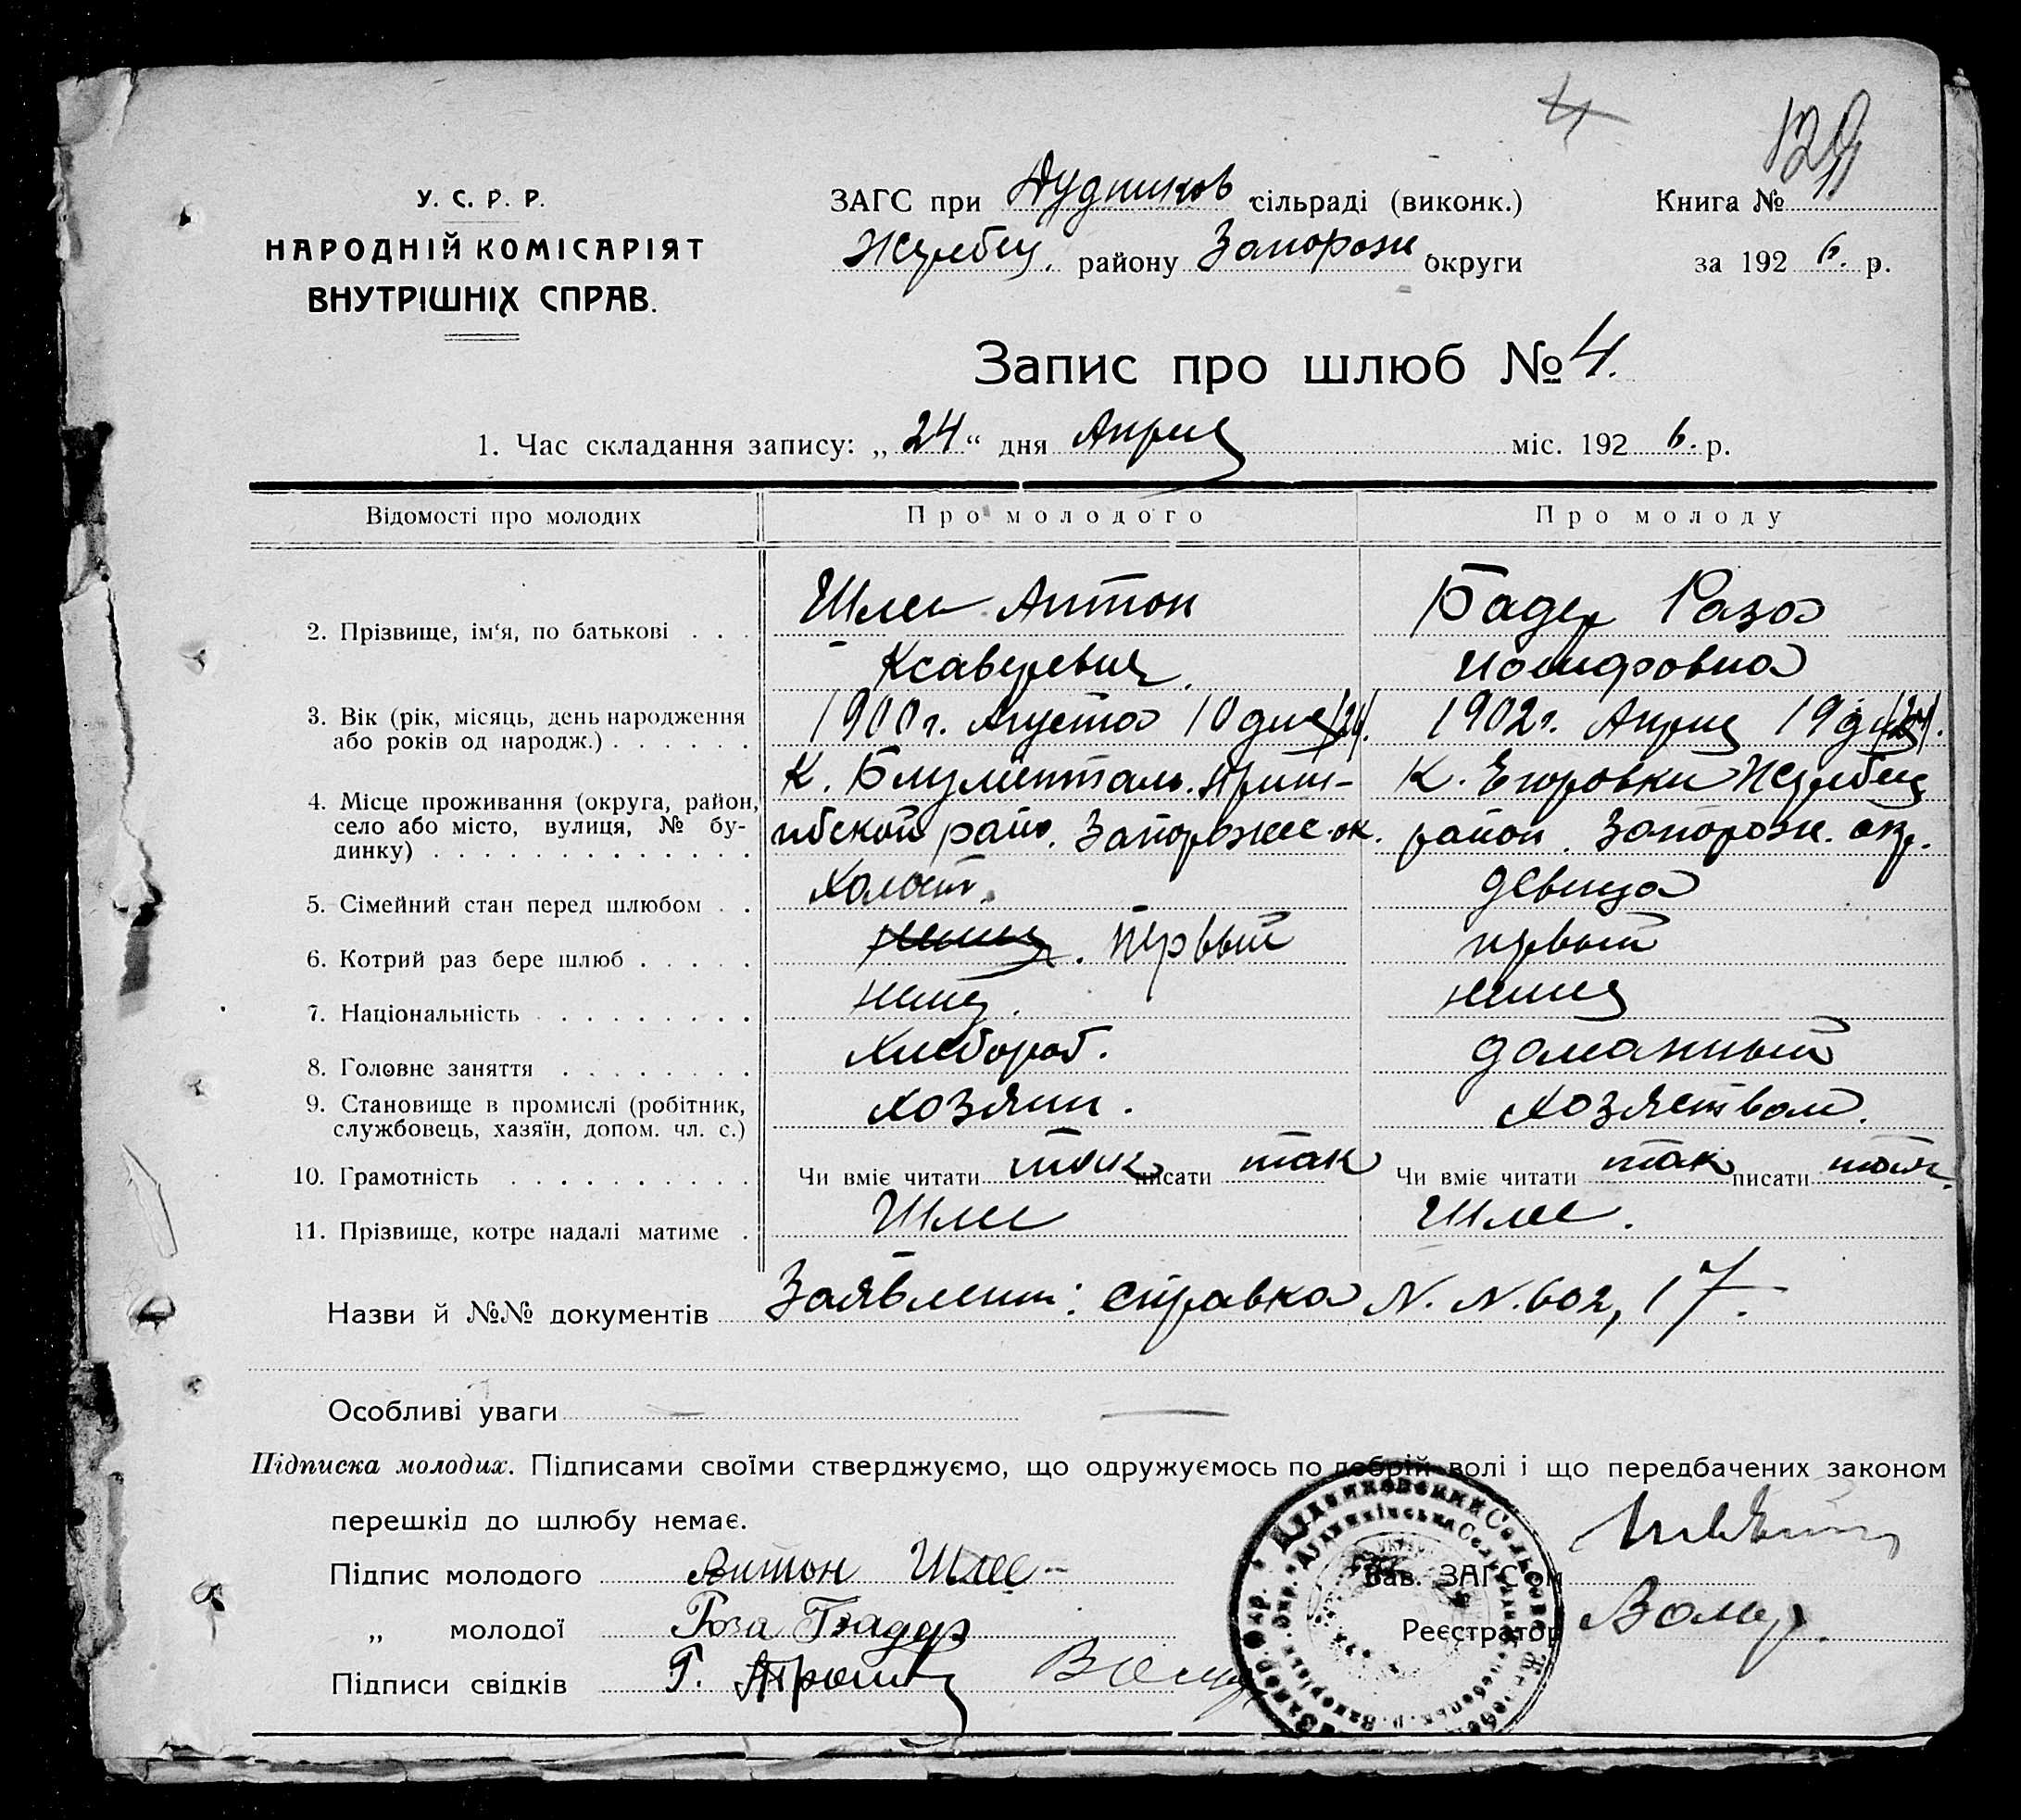 4
129
У. С. Р. Р.
НАРОДНІЙ КОМІСАРІЯТ
ВНУТРІШНІХ СПРАВ.
ЗАГС при Дудников сільраді (виконк.)
Жеребец. району Запорож округи
Книга №
за 192 6. р.
Запис про шлюб № 4.
1. Час складання запису: „ 24 “ дня Апреля міс. 192 6. р.
Відомості про молодих
Про молодого
Про молоду
2. Прізвище, ім‘я, по батькові
Шлее Антон
Ксавериевич.
Бадер Роза
Иосифовна
3. Вік (рік, місяць, день народження
або років од народж.)
1900 г. Августа 10 дня
1902 г. Апреля 19 дня
4. Місце проживання (округа, район,
село або місто, вулиця, № бу-
динку)
К. Блументталь. Приш-
ибской райо. Запорожс ок.
К. Егоровки Жеребец
район. Запорож. окр.
5. Сімейний стан перед шлюбом
Холост.
девица
6. Котрий раз бере шлюб
немец. первый
первый
7. Національність
немец.
немец
8. Головне заняття
Хлебороб.
домашный
9. Становище в промислі (робітник,
службовець, хазяїн, допом. чл. с.)
хозяин.
хозяством.
10. Грамотність
Чи вміє читати так писати так
Чи вміє читати так писати так.
11. Прізвище, котре надалі матиме
Шлее
Шлее.
Назви й №№ документів Заявлени: справка N. N. 602, 17.
Особливі уваги
Підписка молодих. Підписами своїми стверджуємо, що одружуємось по добрій волі і що передбачених законом
перешкід до шлюбу немає.
Підпис молодого Антон Шлее
„ молодої Роза Бадер
Підписи свідків
Зав. ЗАГС'ом
Реєстратор